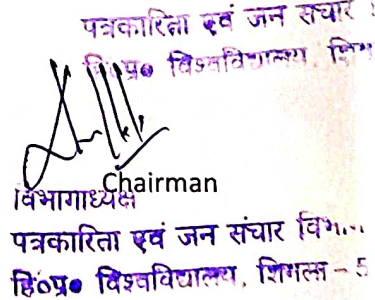 पत्रकारिता एवं जन संचार
हि०प्र० विश्वविद्यालय, शिम
Chairman
विभागाध्यक्ष
पत्रकारिता एवं जन संचार विभाग
हि०प्र० विश्वविद्यालय, शिमला - 5